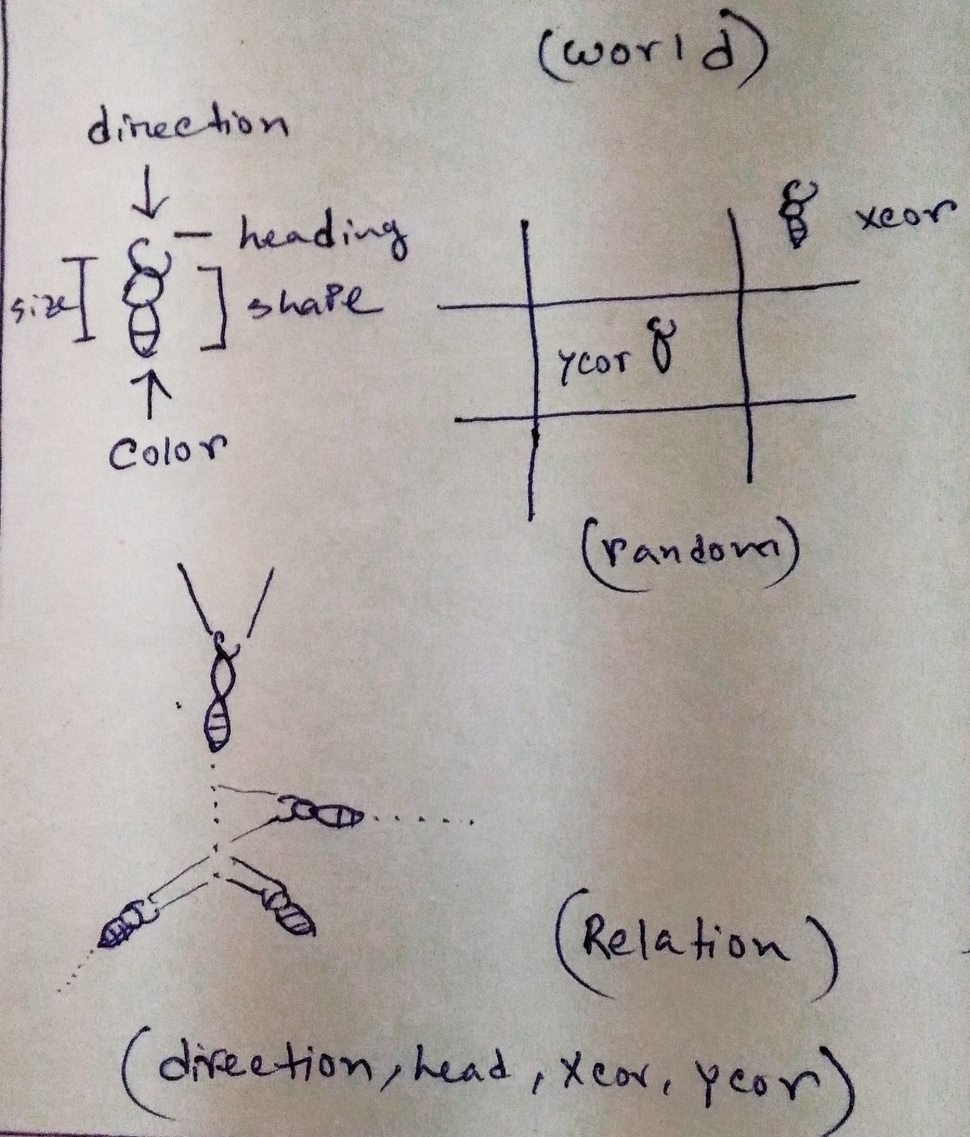 (world)
direction
heading
size
shape
color
xcor
ycor
(random)
(Relation)
(direction, head, xcor, ycor)